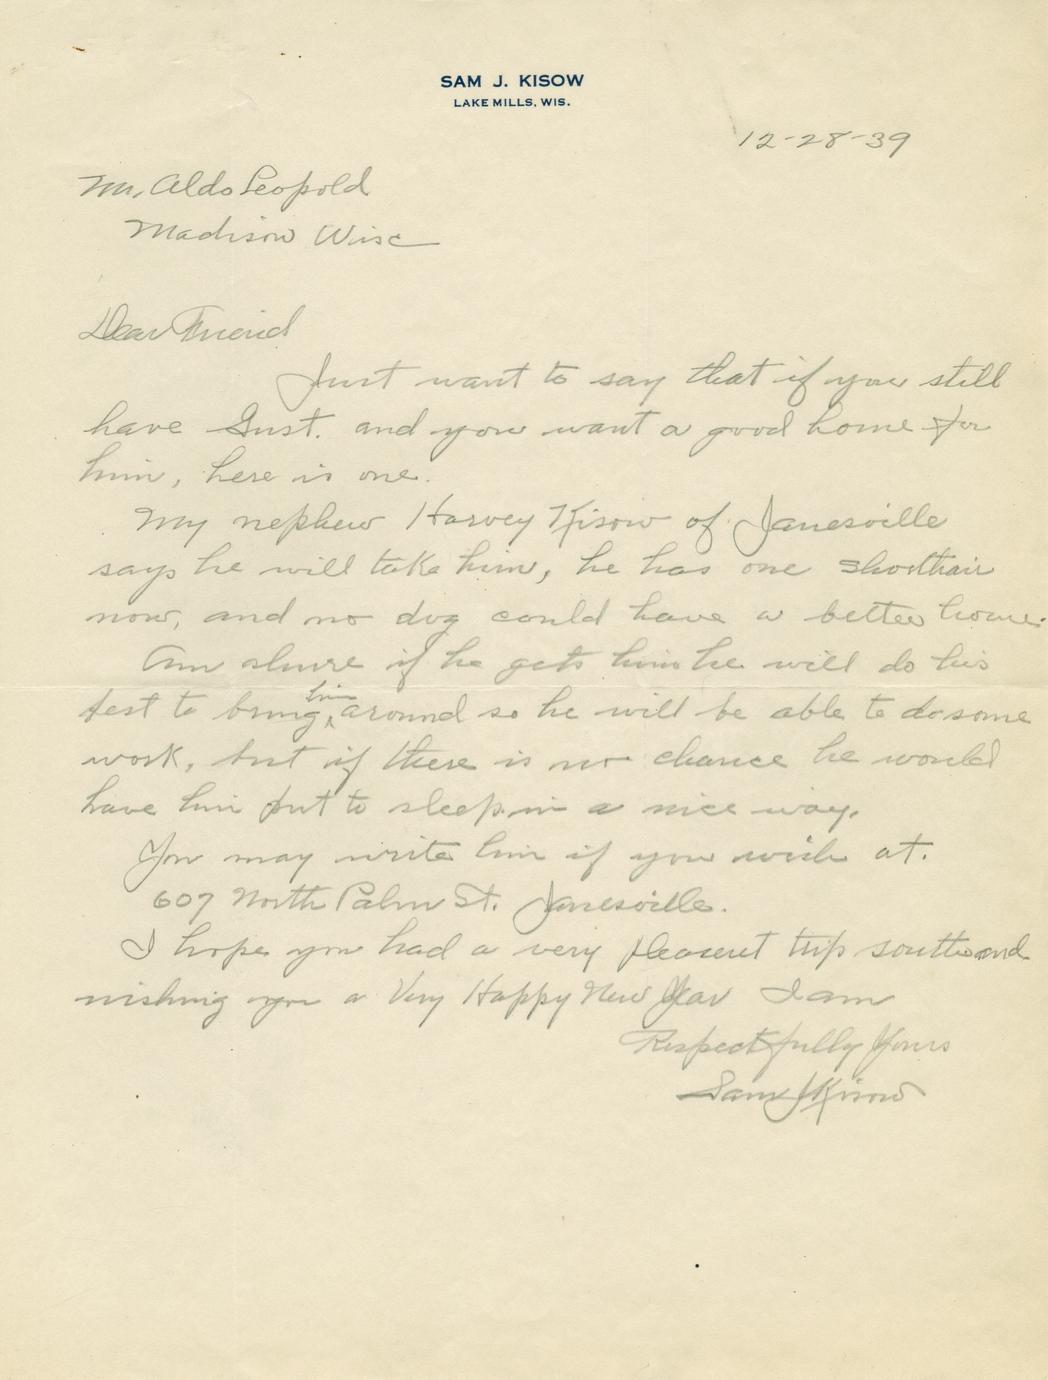 SAM J. KISOW
LAKE MILLS, WIS.
12-28-39
Mr. Aldo Leopold
Madison Wisc
Dear Friend
Just want to say that if you still
have Gust. and you want a good home for
him, here is one.
My nephew Harvey Kisow of Janesville
says he will take him, he has one shorthair
now, and no dog could have a better home.
Am shure if he gets him he will do his
best to bring him around so he will be able to do some
work, but if there is no chance he would
have him put to sleep in a nice way.
You may write him if you wish at.
607 North Palm St. Janesville.
I hope you had a very pleasent trip south and
wishing you a Very Happy New Year I am
Respectfully Yours
Sam J Kisow